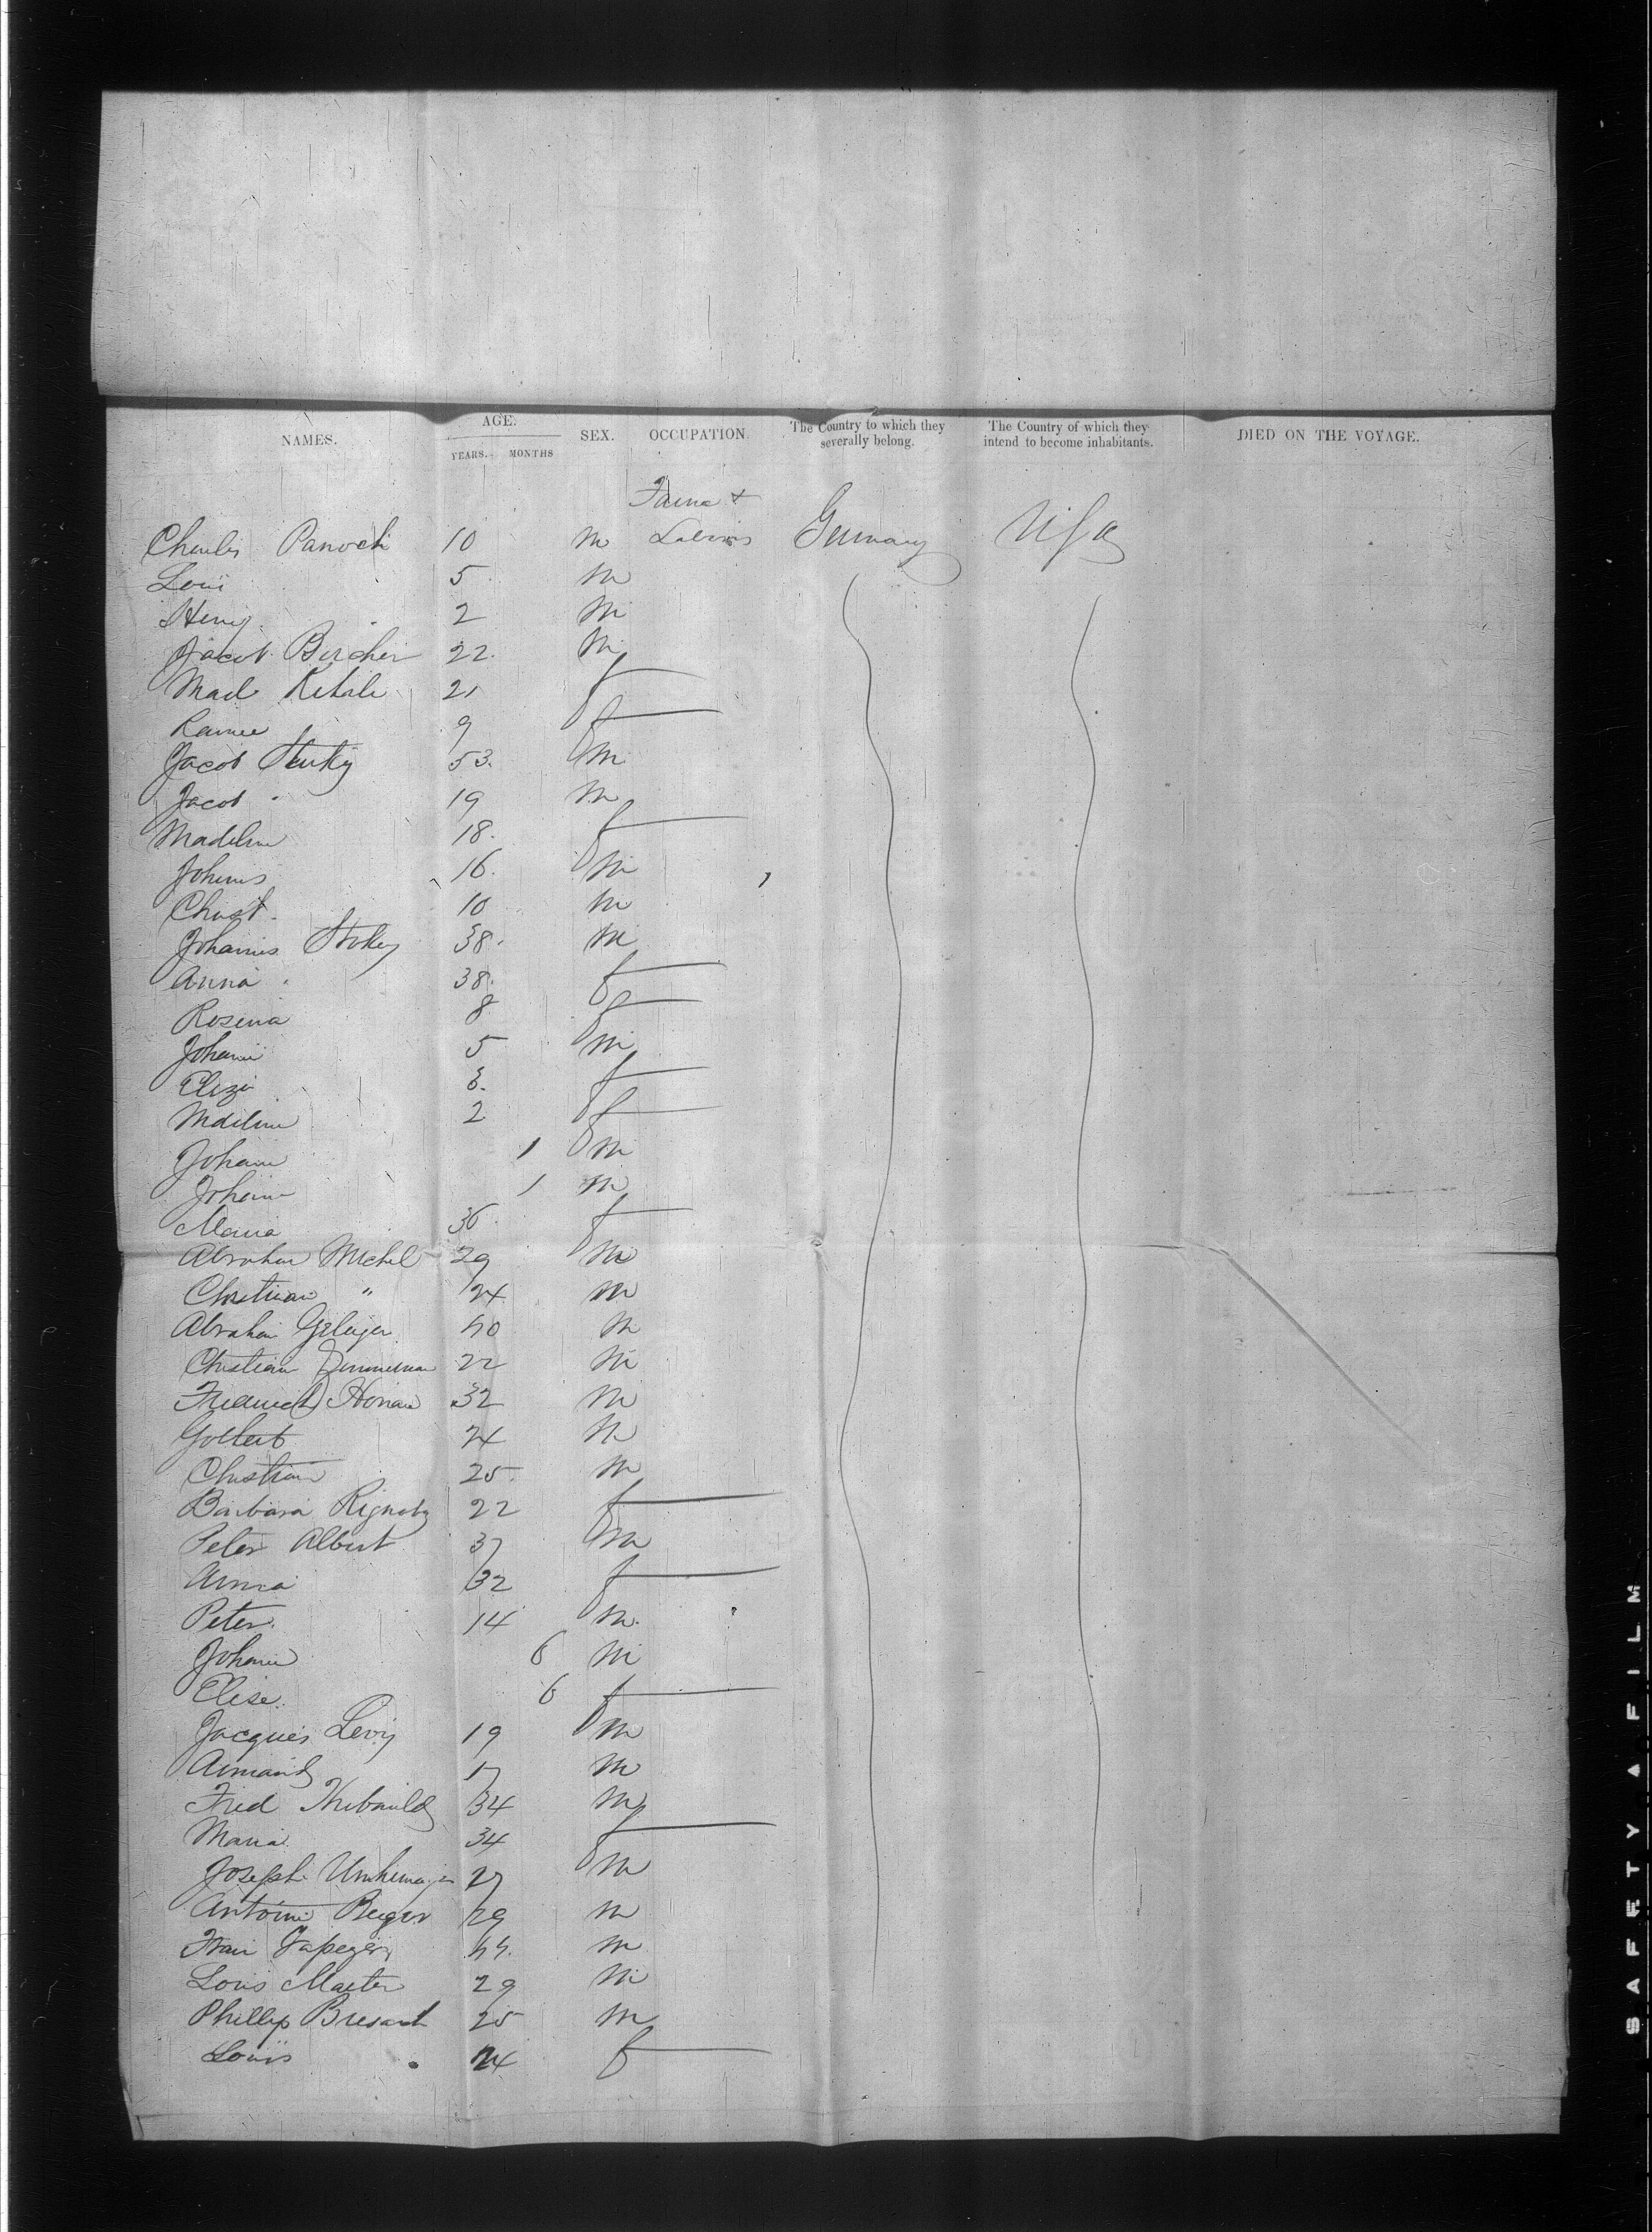 NAMES. AGE. YEARS. MONTHS SEX. OCCUPATION. The Country to which they severally belong. The Country of which they intend to become inhabitants. DIED ON THE VOYAGE.
Farms +
Charles Panoch 10 m Labours Germany USA
Loui 5 m
Henry 2 m
Jacob Bircher 22 m
Mad. 21 f
9 f
Jacob Stuky 53 m
Jacob " 19 m
Madeline 18 f
Johnes 16 m
Christ. 10 m
Johannes Stokey 38 m
Anna " 38 f
Rosina 8 f
Johann 5 m
Eliza 3 f
Mdeline 2 f
Johann 1 m
Johann 1 m
Maria 36 f
Abraham Michel 29 m
Christian " 24 m
Abraham 40 m
Christian Zimmerman 22 m
Friedrich 32 m
24 m
Christian 25 m
Barbara 22 f
Peter Albert 37 m
Anna 32 f
Peter 14 m
Johann 6 m
Elise 6 f
Jacques Levy 19 m
Armand 17 m
Fred Thibauld 34 m
Maria 34 f
Joseph 27 m
Antoine Beiger 29 m
44 m
Louis Master 29 m
Phillip Bresach 25 m
Louis 24 f
SAFETY FILM